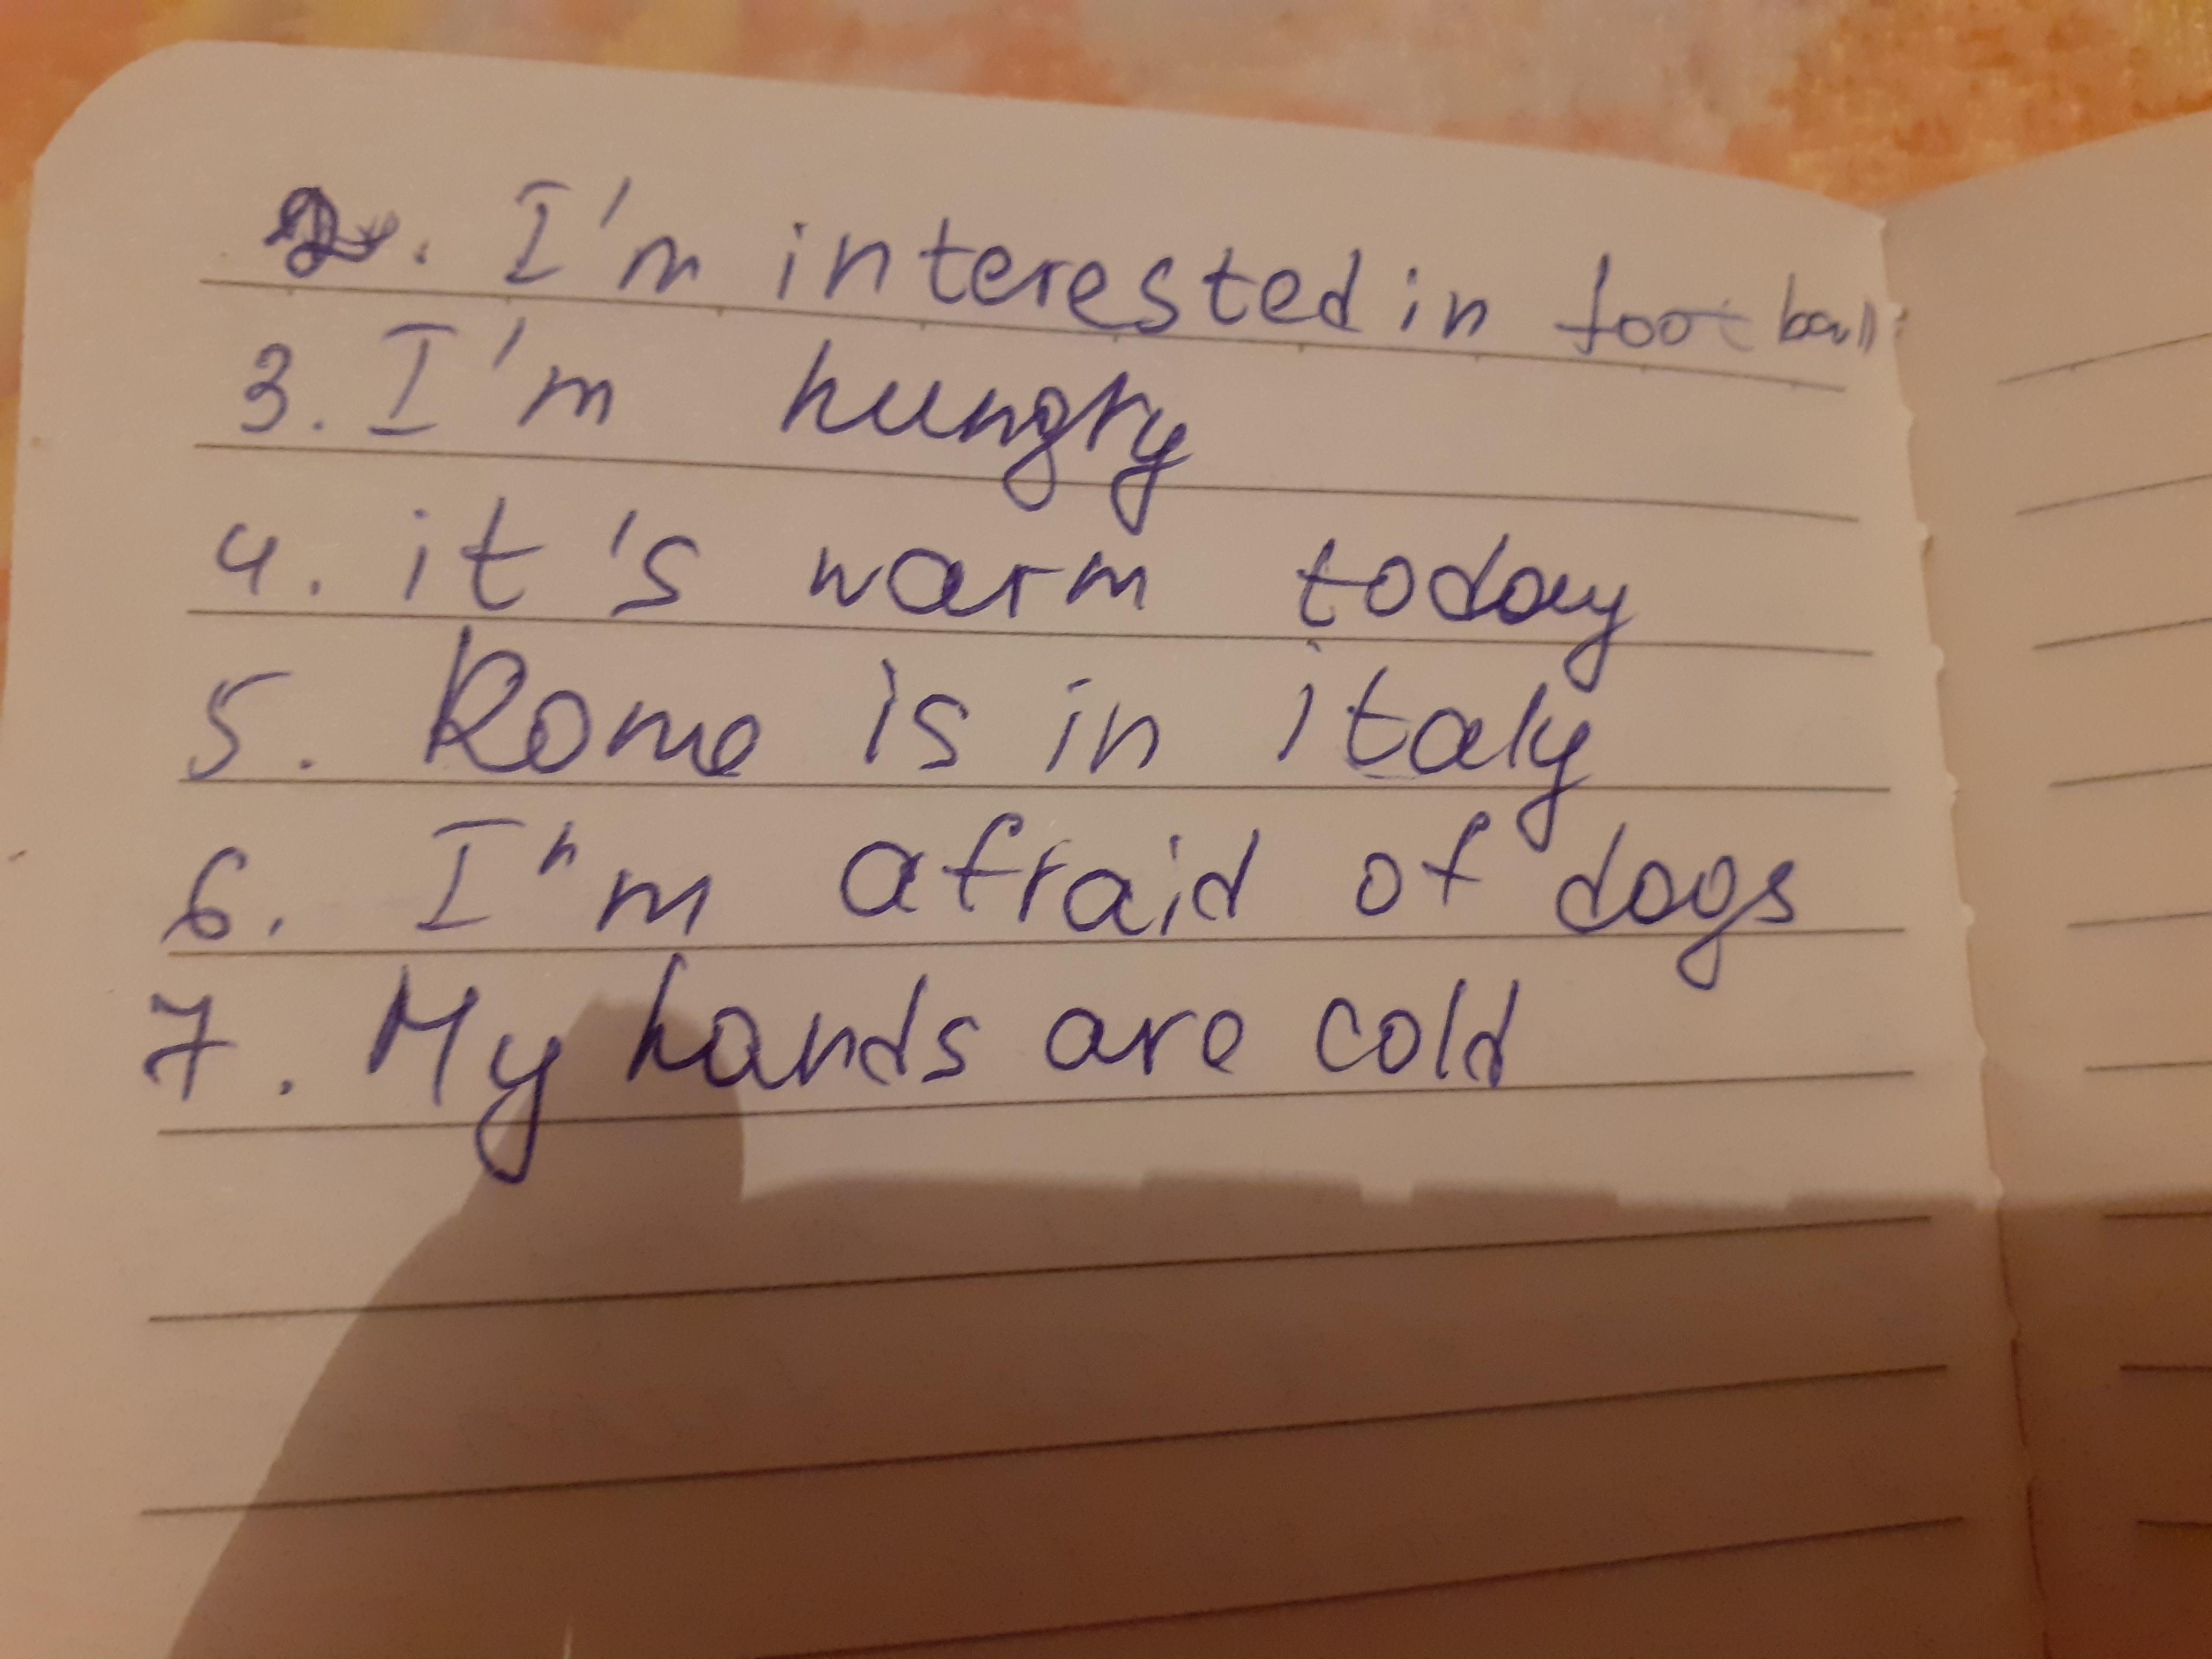 2. I'm interested in football
3. I'm hungry
4. it's warm today
5. Rome is in italy
6. I'm afraid of dogs
7. My hands are cold